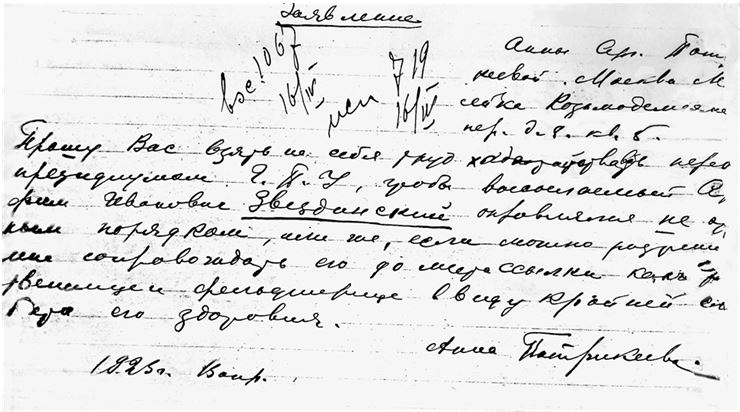 Заявление
вх. 1067
16/IV
исп 719
16/IV
Анны Сер. Пат
кеевой. Москва М
ейка Козьмодемьянс
пер. д. 8. кв. 6.
Прошу Вас взять на себя труд ходатайствовать перед
президиумом Г. П. У, чтобы высылаемый
Иванович Звездинский отправлялся не
ным порядком, или же, если можно разреши
мне сопровождать его до места ссылки как
и фельдшерице ввиду крайней сла
его здоровия.
Анна Патрикеева.
1923 г. 16 апр.